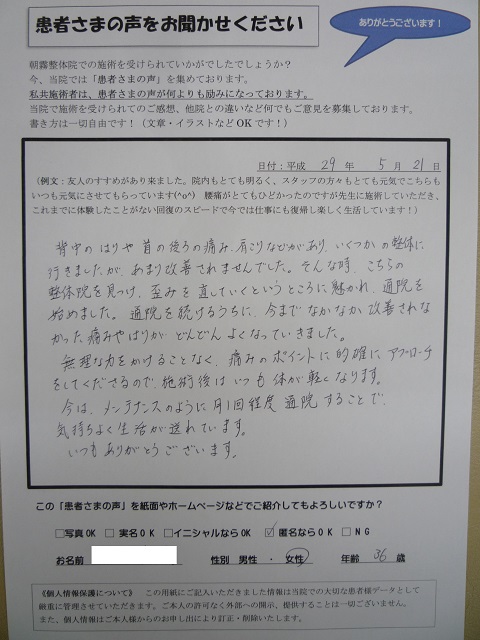 患者さまの声をお聞かせください
ありがとうございます！
朝霧整体院での施術を受けられていかがでしたでしょうか？
今、当院では「患者さまの声」を集めております。
私共施術者は、患者さまの声が何よりも励みになっております。
当院で施術を受けられてのご感想、他院との違いなど何でもご意見を募集しております。
書き方は一切自由です！（文章・イラストなどＯＫです！）
日付：平成 29 年 5 月 21 日
（例文：友人のすすめがあり来ました。院内もとても明るく、スタッフの方々もとても元気でこちらも
いつも元気にさせてもらっています(^o^) 腰痛がとてもひどかったのですが先生に施術していただき、
これまでに体験したことがない回復のスピードで今では仕事にも復帰し楽しく生活しています！）
背中のはりや首の後ろの痛み、肩こりなどがあり、いくつかの整体に
行きましたが、あまり改善されませんでした。そんな時、こちらの
整体院を見つけ、歪みを直していくというところに魅かれ、通院を
始めました。通院を続けるうちに、今までなかなか改善されな
かった痛みやはりがどんどんよくなっていきました。
無理な力をかけることなく、痛みのポイントに的確にアプローチ
をしてくださるので、施術後はいつも体が軽くなります。
今は、メンテナンスのように月1回程度通院することで、
気持ちよく生活が送れています。
いつもありがとうございます。
この「患者さまの声」を紙面やホームページなどでご紹介してもよろしいですか？
□写真OK □実名ＯＫ □イニシャルならOK ☑匿名ならＯＫ □ＮＧ
お名前 性別 男性 ・ 女性 年齢 36 歳
《個人情報保護について》 この用紙にご記入いただきました情報は当院での大切な患者様データとして
厳重に管理させていただきます。ご本人の許可なく外部への開示、提供することは一切ございません。
また、個人情報はご本人様からのお申し出により訂正・削除いたします。